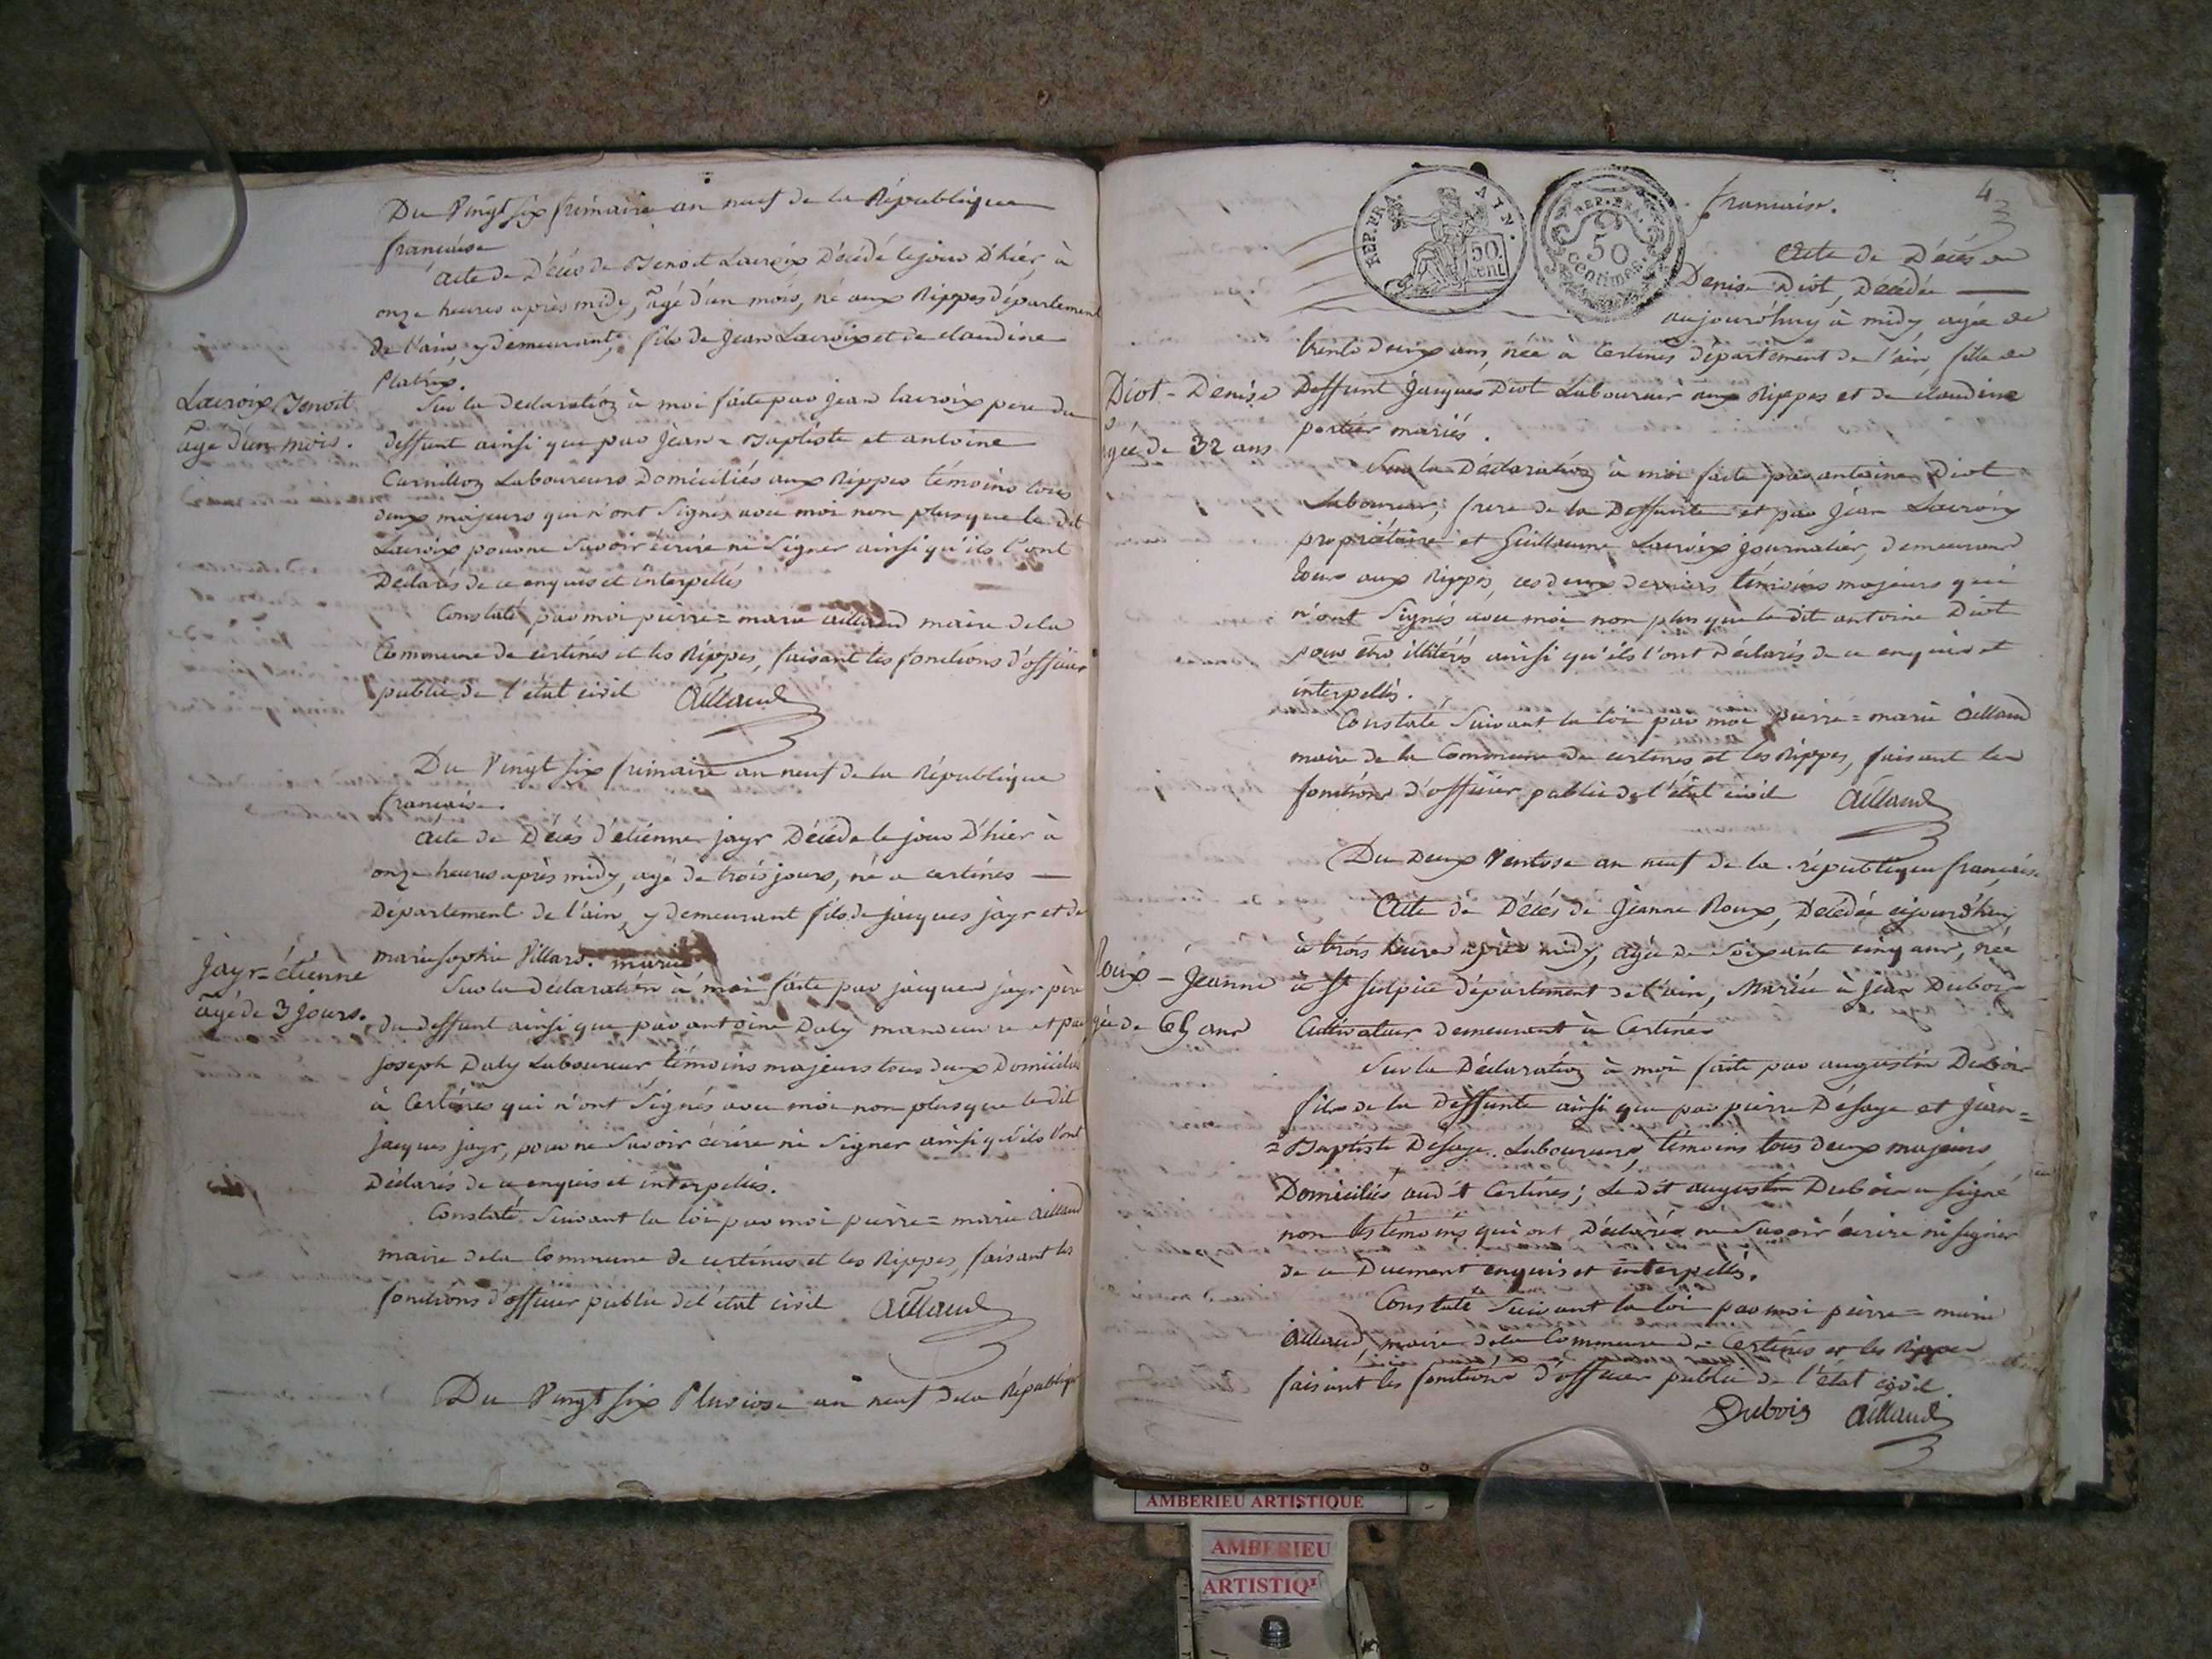 Du Vingt six frimaire an neuf de la République
française
Acte de Décès de Benoit Lacroix Décédé le jour D'hier, à
onze heures après midy, agé d'un mois, né aux Rippes département
de l'ain, y demeurant, fils de Jean Lacroix et de claudine
Lacroix Benoit
agé d'un mois.
Sur la declaration à moi faite par jean lacroix pere du
deffunt ainsi que par Jean-Baptiste et antoine
Laboureurs Domiciliés aux Rippes témoins tous
deux majeurs qui n'ont Signés avec moi non plus que le dit
Lacroix pour ne Savoir écrire ni Signer ainsi qu'ils l'ont
Déclarés de ce enquis et interpellés
Constaté par moi pierre=marie aillaud maire de la
Commune de certines et les Rippes, faisant les fonctions d'officier
public de l'état civil Aillaud
Du Vingt six frimaire an neuf de la République
française.
Acte de Décès d'etienne jayr Décédé le jour D'hier à
onze heures après midy, agé de trois jours, né a certines
Département de l'ain, y demeurant fils de jacques jayr et de
marie sophie Villard. mariés
Jayr=étienne
agé de 3 jours.
Sur la déclaration à moi faite par jacques jayr père
du deffunt ainsi que par antoine Daly manoeuvre et par
joseph Daly Laboureur témoins majeurs tous deux Domiciliés
à Certines qui n'ont Signés avec moi non plus que le dit
jacques jayr, pour ne Savoir écrire ni Signer ainsi qu'ils l'ont
Déclarés de ce enquis et interpellés.
Constaté Suivant la loi par moi pierre=marie aillaud
maire de la Commune de certines et les Rippes, faisant les
fonctions d'officier public de l'état civil Aillaud
Du Vingt Six Pluviose an neuf de la République
REP. FRA.
50
cent
REP. FRA.
50
centimes
4
française.
Acte de Décès de
Denise Diot, Décédée
aujourd'huy à midy, agée de
trente deux ans, née à Certines département de l'ain, fille de
Diot - Denise
agée de 32 ans
Deffunt Jacques Diot Laboureur aux Rippes et de claudine
portier mariés.
Sur la Déclaration à moi faite par antoine Diot
Laboureur, frere de la Deffunte et par Jean Lacroix
propriétaire et Guillaume Lacroix journalier, demeurant
tous aux Rippes, ces deux derniers témoins majeurs qui
n'ont Signés avec moi non plus que le dit antoine Diot
pour être illitérés ainsi qu'ils l'ont déclarés de ce enquis et
interpellés.
Constaté Suivant la loi par moi pierre=marie Aillaud
maire de la Commune de certines et les Rippes, faisant les
fonctions d'officier public de l'état civil Aillaud
Du Deux Ventose an neuf de la république française
Acte de Décès de Jeanne Roux, Décédée aujourd'huy
à trois heures après midy, agée de Soixante cinq ans, née
Roux - Jeanne
agée de 65 ans
à St Sulpice département de l'ain, Mariée à Jean Dubois
Cultivateur demeurant à Certines
Sur la Déclaration à moi faite par augustin Dubois
fils de la Deffunte ainsi que par pierre Desaye et Jean=
=Baptiste Desaye Laboureurs, témoins tous deux majeurs
Domiciliés audit Certines; Le dit augustin Dubois a signé
non les témoins qui ont Déclarés ne Savoir écrire ni signer
de ce Duement enquis et interpellés.
Constaté Suivant la loi par moi pierre=marie
Aillaud, maire de la Commune de Certines et les Rippes
faisant les fonctions d'officier public de l'état civil.
Dubois Aillaud
AMBERIEU ARTISTIQUE
AMBERIEU
ARTISTIQ